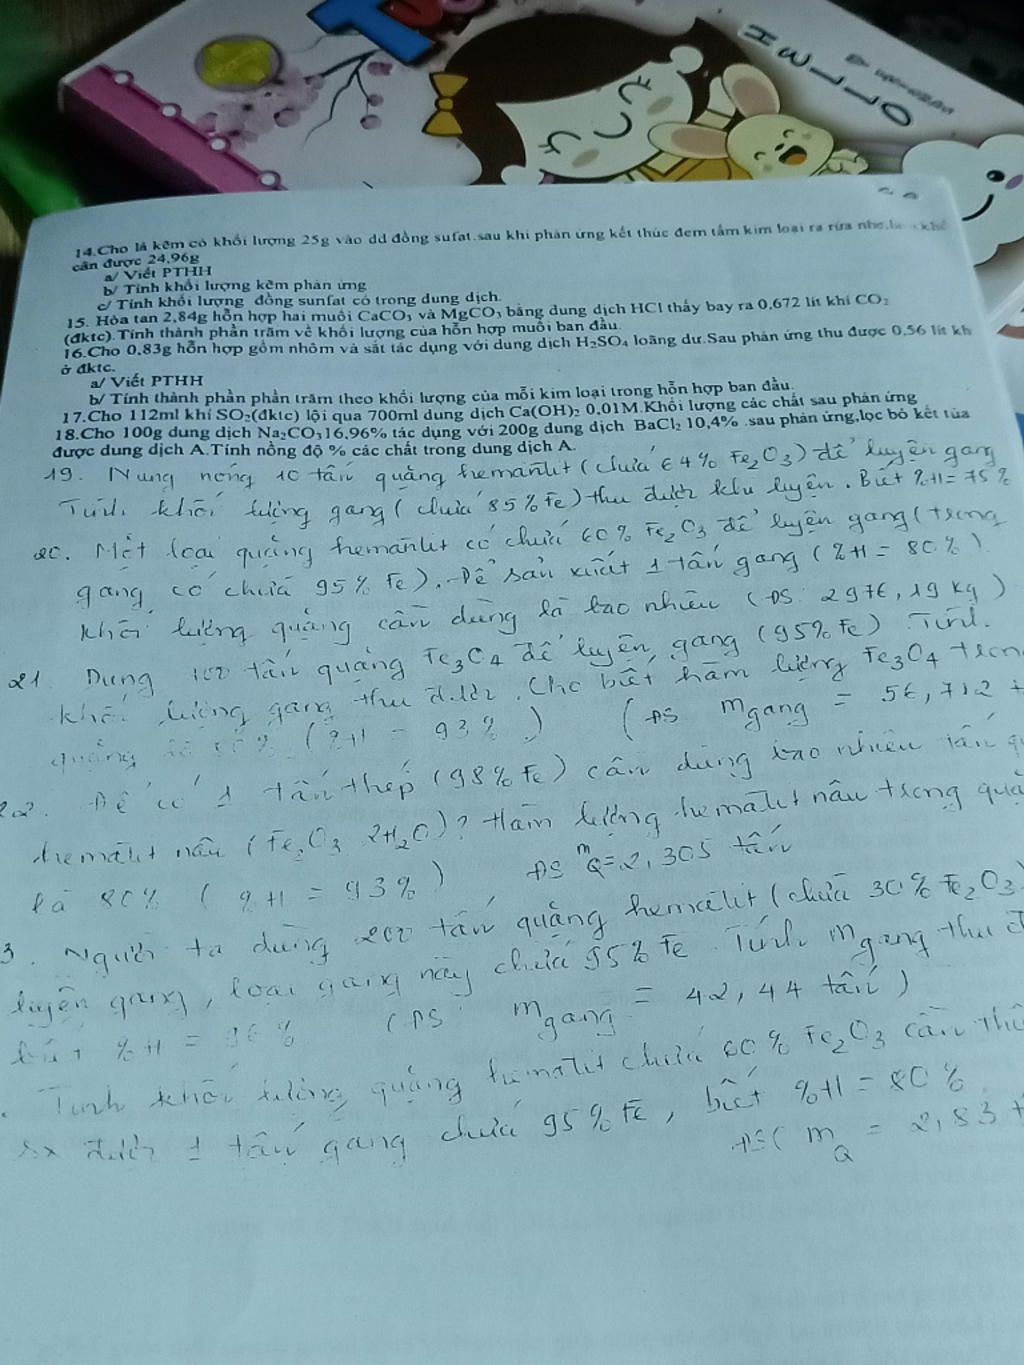 HELLO
14.Cho lá kẽm có khối lượng 25g vào dd đồng sufat.sau khi phản ứng kết thúc đem tấm kim loại ra rửa nhẹ,
cân được 24,96g
a/ Viết PTHH
b/ Tính khối lượng kẽm phản ứng
c/ Tính khối lượng đồng sunfat có trong dung dịch.
15. Hòa tan 2,84g hỗn hợp hai muối CaCO₃ và MgCO₃ bằng dung dịch HCl thấy bay ra 0,672 lít khí CO₂
(đktc).Tính thành phần trăm về khối lượng của hỗn hợp muối ban đầu.
16.Cho 0,83g hỗn hợp gồm nhôm và sắt tác dụng với dung dịch H₂SO₄ loãng dư.Sau phản ứng thu được 0,56 lít kh
ở đktc.
a/ Viết PTHH
b/ Tính thành phần phần trăm theo khối lượng của mỗi kim loại trong hỗn hợp ban đầu.
17.Cho 112ml khí SO₂(đktc) lội qua 700ml dung dịch Ca(OH)₂ 0,01M.Khối lượng các chất sau phản ứng
18.Cho 100g dung dịch Na₂CO₃16,96% tác dụng với 200g dung dịch BaCl₂ 10,4% .sau phản ứng,lọc bỏ kết tủa
được dung dịch A.Tính nồng độ % các chất trong dung dịch A.
19. Nung nóng 10 tấn quặng hemantit (chứa 64% Fe₂O₃) để luyện gang
Tính khối lượng gang (chứa 85% Fe) thu được khi luyện. Biết %H = 75%
20. Một loại quặng hemantit có chứa 60% Fe₂O₃ để luyện gang (trong
gang có chứa 95% Fe). Để sản xuất 1 tấn gang (%H = 80%)
khối lượng quặng cần dùng là bao nhiêu (ĐS: 2976,19 kg)
21. Dùng 100 tấn quặng Fe₃O₄ để luyện gang (95% Fe) Tính
khối lượng gang thu được. Cho biết hàm lượng Fe₃O₄ tron
quặng là 80% (%H = 93%) (ĐS m gang = 56,712 t
22. Để có 1 tấn thép (98% Fe) cần dùng bao nhiêu tấn qu
hematit nâu (Fe₂O₃ 2H₂O)? Hàm lượng hematit nâu trong quặ
là 80% (%H = 93%) ĐS mQ = 2,305 tấn
3. Người ta dùng 200 tấn quặng hematit (chứa 30% Fe₂O₃
luyện gang, loại gang này chứa 95% Fe. Tính m gang thu đ
biết %H = 96% (ĐS m gang = 42,44 tấn)
. Tính khối lượng quặng hematit chứa 60% Fe₂O₃ cần thi
sx được 1 tấn gang chứa 95% Fe, biết %H = 80%
ĐS( mQ = 2,83 t